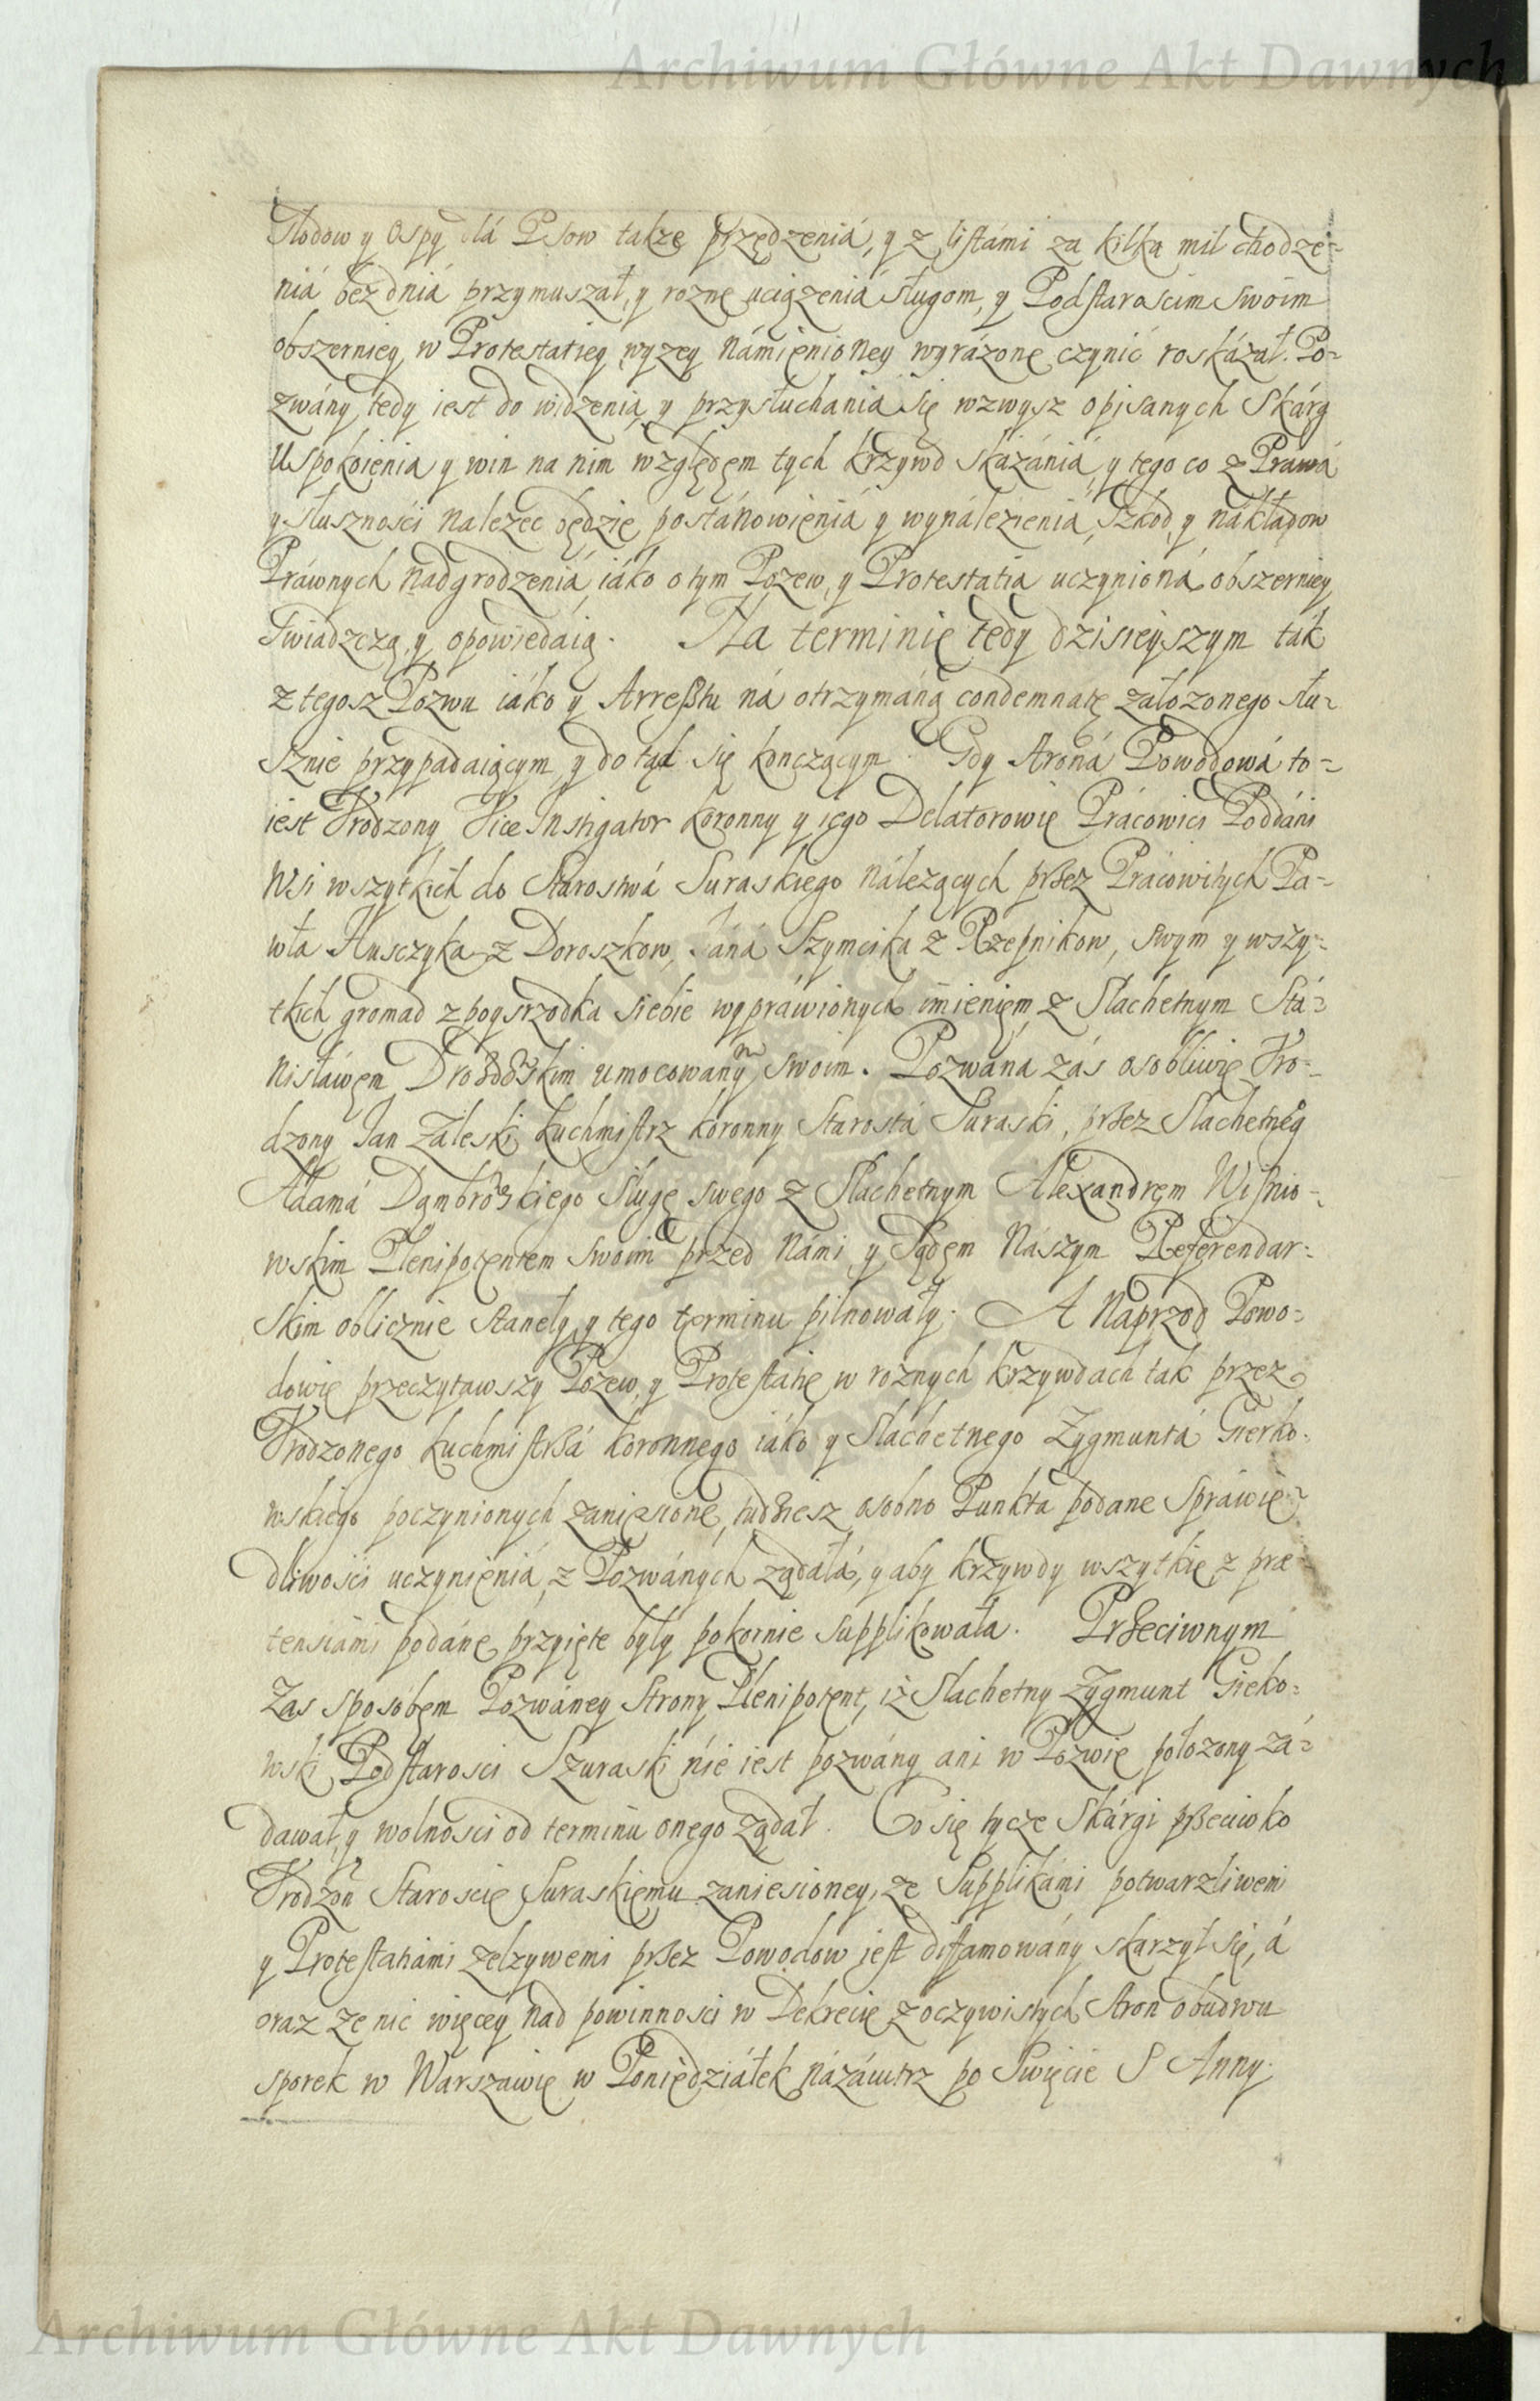 Archiwum Główne Akt Dawnych
Słodow y Ospy dlá Psow także przędzeniá, y z listámi za kilka mil chodze-
niá bez dniá przymuszał, y rożne uciążeniá sługom, y Podstarościm swoim
obszerniey w Protestatiey wyzey námienioney wyráżone czynić roskázał. Po-
zwány tedy iest do widzenia y przysłuchania się wzwysz opisanych Skárg
Uspokoienia y win na nim względem tych krzywd skazániá, y tego co z Práwá
y słusznośći należec będzie, postánowieniá y wynáleźieniá, szkod, y nákłádow
Práwnych nadgrodzeniá iáko o tym Pozew, y Protestatia uczynioná obszerniey
Swiadzczą, y opowiedaią. Na terminie tedy dzisieyszym ták
z tegosz Pozwu iáko y Arresztu ná otrzymáną condemnatę záłożonego słu-
sznie przypadaiącym y do tąd się kończącym. Gdy Stroná Powodowá to-
iest Vrodzony Vice Instigator koronny y iego Delatorowie Prácowići Poddáni
Wśi wszytkich do Starostwá Suraskiego náleżących przez Prácowitych Pa-
wła Husczyka z Doroszkow, Janá Szymcika z Rzepnikow, swym y wszy-
tkich gromad z pogsrzodka siebie wypráwionych imieniem z Slachetnym Stá-
nisławem Drozdowskim umocowanym swoim. Pozwána zás osobliwie Vro-
dzony Jan Záleski kuchmistrz koronny Starostá Suraski, przez Slachetneg
Adamá Dąmbrowskiego Sługę swego z Slachetnym Alexandrem Wiśnio-
wskim Plenipotentem swoim przed Námi y Sądem Nászym Referendar-
skim oblicznie stanęły, y tego terminu pilnowały. A Naprzod Powo-
dowie przeczytawszy Pozew, y Protestatię w rożnych krzywdach tak przez
Vrodzonego kuchmistrzá koronnego iáko y Slachetnego Zygmuntá Gierko-
wskiego poczynionych zaniesione, tudzież osobno Punktá podane Spráwie-
dliwośći uczynieniá z Pozwánych żądáłá, y aby krzywdy wszytkie z præ-
tensiámi podáne przyięte były pokornie supplikowała. Przeciwnym
Zas sposobem Pozwáney Strony Plenipotent, iż Slachetny Zygmunt Gieko-
wski Podstarosci Szuraski nie iest pozwány ani w Pozwie położony zá-
dawał, y wolnośći od terminu onego żądał. Co się tycze Skárgi przeciwko
Vrodzon Starosćie Suraskiemu zaniesioney, że Supplikámi potwarzliwemi
y Protestatiami zelzywemi przez Powodow iest diffamowány skarżył się, á
oraz że nic więcey nad powinnośći w Dekrecie z oczywistych Stron obudwu
sporek w Warszawie w Poniedziáłek názáiutrz po Swięćie S Anny
Archiwum Główne Akt Dawnych